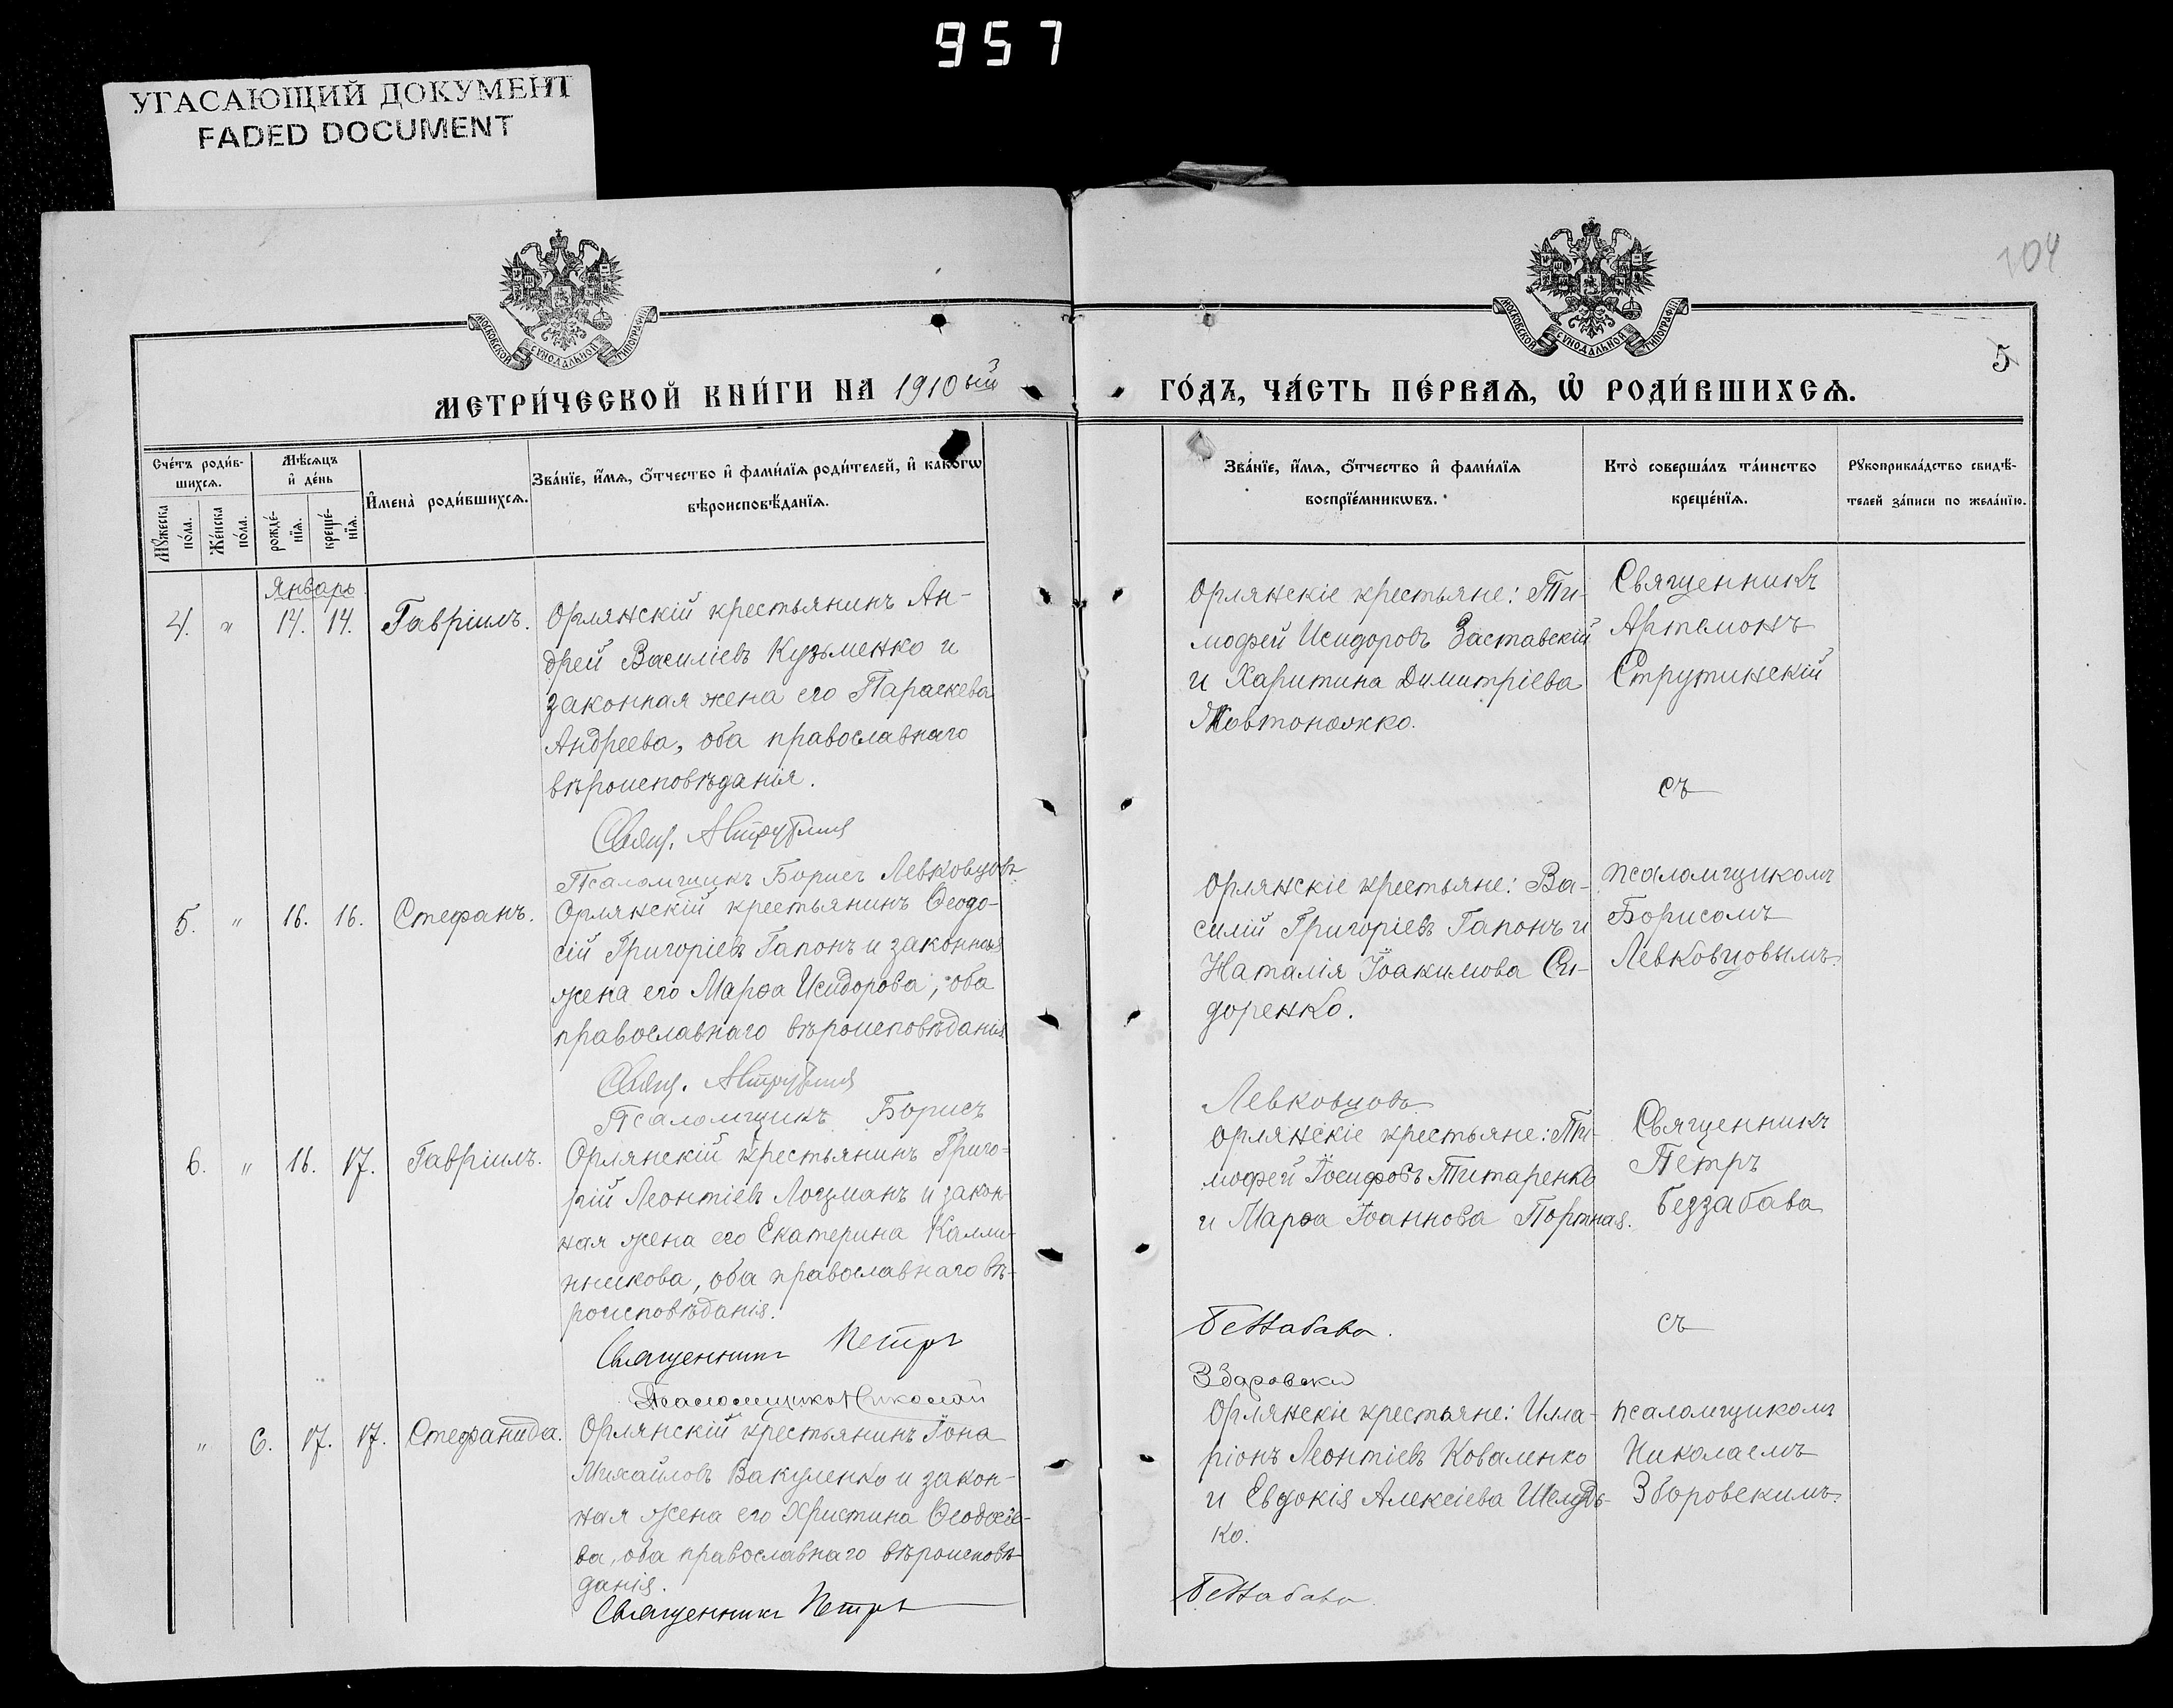 957
УГАСАЮЩИЙ ДОКУМЕНТ
FADED DOCUMENT
104
МОСКОВСКОЙ СѴНОДАЛЬНОЙ ТИПОГРАФІИ
МОСКОВСКОЙ СѴНОДАЛЬНОЙ ТИПОГРАФІИ
5
МЕТРИ́ЧЕСКОЙ КНИ́ГИ НА 1910ый
ГО́ДЪ, ЧА́СТЬ ПЕ́РВАѦ, Ѡ҆ РОДИ́ВШИХСѦ.
Сче́тъ роди́в-
шихсѧ.
Мꙋ́жеска
по́ла.
Же́нска
по́ла.
Мѣ́сѧцъ
и҆ де́нь
рожде́-
нїѧ.
креще́-
нїѧ.
И҆мена̀ роди́вшихсѧ.
Зва́нїе, и҆́мѧ, ѻ҆́тчество и҆ фами́лїѧ роди́телей, и҆ како́гѡ
вѣроисповѣ́данїѧ.
Зва́нїе, и҆́мѧ, ѻ҆́тчество и҆ фами́лїѧ
воспрїе́мникѡвъ.
Кто̀ соверша́лъ та́инство
креще́нїѧ.
Рꙋкоприкла́дство свидѣ́-
телей за́писи по жела́нїю.
Январь
4. " 14. 14. Гавріилъ.
Орлянскій крестьянинъ Ан-
дрей Василіевъ Кузьменко и
законная жена его Параскева
Андреева, оба православнаго
вѣроисповѣданія.
Свящ.
Псаломщикъ Борисъ Левковцовъ
Орлянскіе крестьяне: Ти-
мофей Исидоровъ Заставскій
и Харитина Димитріева
Жовтоножко.
Священникъ
Артемонъ
Струтинскій
съ
псаломщикомъ
Борисомъ
Левковцовымъ.
5. " 16. 16. Стефанъ.
Орлянскій крестьянинъ Ѳеодо-
сій Григоріевъ Гапонъ и законная
жена его Марѳа Исидорова, оба
православнаго вѣроисповѣданія
Свящ.
Псаломщикъ Борисъ
Орлянскіе крестьяне: Ва-
силій Григоріевъ Гапонъ и
Наталія Іоакимова Си-
доренко.
Левковцовъ
6. " 16. 17. Гавріилъ.
Орлянскій крестьянинъ Григо-
рій Леонтіевъ Лоцманъ и закон-
ная жена его Екатерина Калли-
нникова, оба православнаго вѣ-
роисповѣданія.
Священникъ Петръ
Псаломщикъ Николай
Орлянскіе крестьяне: Ти-
мофей Іосифовъ Титаренко
и Марѳа Іоаннова Портная.
Беззабава.
Збаровски
Священникъ
Петръ
Беззабава
съ
псаломщикомъ
Николаемъ
Зборовскимъ.
" 6. 17. 17. Стефанида.
Орлянскій крестьянинъ Іона
Михайловъ Вакуленко и закон-
ная жена его Христина Ѳеодосіе-
ва, оба православнаго вѣроисповѣ-
данія.
Священникъ Петръ
Орлянскіе крестьяне: Ила-
ріонъ Леонтіевъ Коваленко
и Евдокія Алексіева Шелудь-
ко.
Беззабава